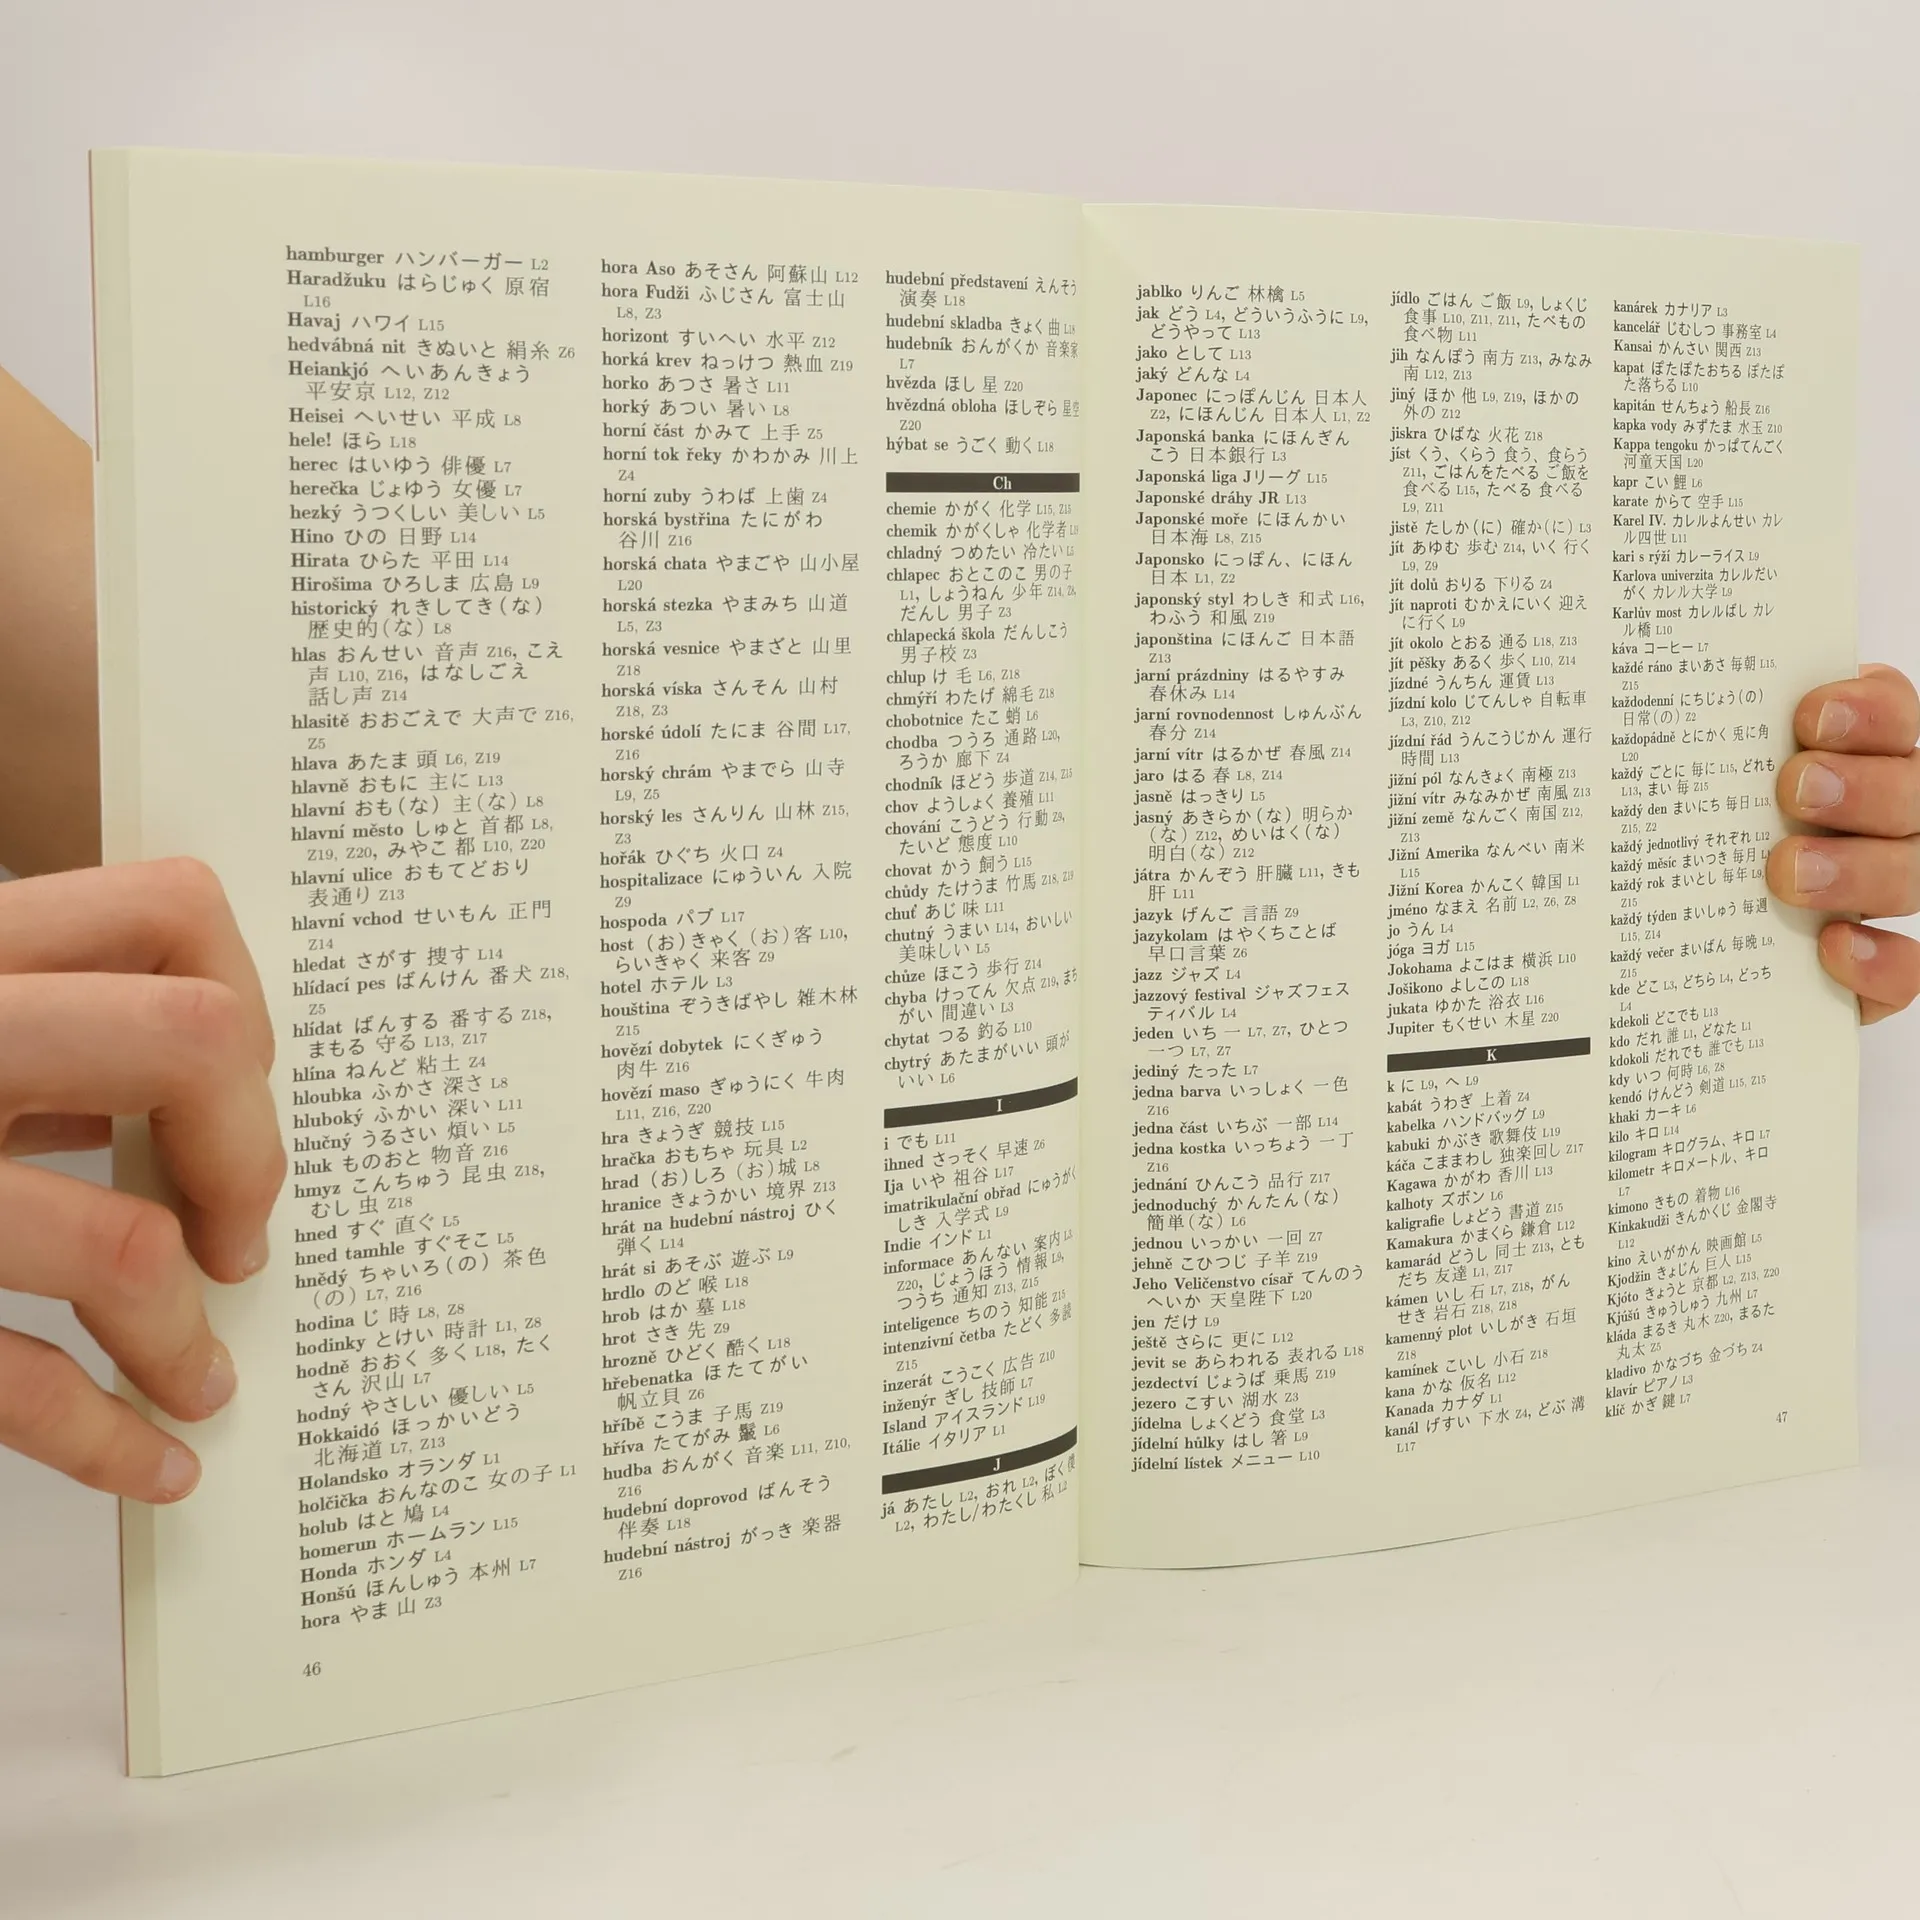 hamburger ハンバーガー L2
Haradžuku はらじゅく 原宿
L16
Havaj ハワイ L15
hedvábná nit きぬいと 絹糸 Z6
Heiankjó へいあんきょう
平安京 L12, Z12
Heisei へいせい 平成 L8
hele! ほら L18
herec はいゆう 俳優 L7
herečka じょゆう 女優 L7
hezký うつくしい 美しい L5
Hino ひの 日野 L14
Hirata ひらた 平田 L14
Hirošima ひろしま 広島 L9
historický れきしてき(な)
歴史的(な) L8
hlas おんせい 音声 Z16, こえ
声 L10, Z16, はなしごえ
話し声 Z14
hlasitě おおごえで 大声で Z16,
Z5
hlava あたま 頭 L6, Z19
hlavně おもに 主に L13
hlavní おも(な) 主(な) L8
hlavní město しゅと 首都 L8,
Z19, Z20, みやこ 都 L10, Z20
hlavní ulice おもてどおり
表通り Z13
hlavní vchod せいもん 正門
Z14
hledat さがす 捜す L14
hlídací pes ばんけん 番犬 Z18,
Z5
hlídat ばんする 番する Z18,
まもる 守る L13, Z17
hlína ねんど 粘土 Z4
hloubka ふかさ 深さ L8
hluboký ふかい 深い L11
hlučný うるさい 煩い L5
hluk ものおと 物音 Z16
hmyz こんちゅう 昆虫 Z18,
むし 虫 Z18
hned すぐ 直ぐ L5
hned tamhle すぐそこ L5
hnědý ちゃいろ(の) 茶色
(の) L7, Z16
hodina じ 時 L8, Z8
hodinky とけい 時計 L1, Z8
hodně おおく 多く L18, たく
さん 沢山 L7
hodný やさしい 優しい L5
Hokkaidó ほっかいどう
北海道 L7, Z13
Holandsko オランダ L1
holčička おんなのこ 女の子 L1
holub はと 鳩 L4
homerun ホームラン L15
Honda ホンダ L4
Honšú ほんしゅう 本州 L7
hora やま 山 Z3
46
hora Aso あそさん 阿蘇山 L12
hora Fudži ふじさん 富士山
L8, Z3
horizont すいへい 水平 Z12
horká krev ねっけつ 熱血 Z19
horko あつさ 暑さ L11
horký あつい 暑い L8
horní část かみて 上手 Z5
horní tok řeky かわかみ 川上
Z4
horní zuby うわば 上歯 Z4
horská bystřina たにがわ
谷川 Z16
horská chata やまごや 山小屋
L20
horská stezka やまみち 山道
L5, Z3
horská vesnice やまざと 山里
Z18
horská víska さんそん 山村
Z18, Z3
horské údolí たにま 谷間 L17,
Z16
horský chrám やまでら 山寺
L9, Z5
horský les さんりん 山林 Z15,
Z3
hořák ひぐち 火口 Z4
hospitalizace にゅういん 入院
Z9
hospoda パブ L17
host (お)きゃく (お)客 L10,
らいきゃく 来客 Z9
hotel ホテル L3
houština ぞうきばやし 雑木林
Z15
hovězí dobytek にくぎゅう
肉牛 Z16
hovězí maso ぎゅうにく 牛肉
L11, Z16, Z20
hra きょうぎ 競技 L15
hračka おもちゃ 玩具 L2
hrad (お)しろ (お)城 L8
hranice きょうかい 境界 Z13
hrát na hudební nástroj ひく
弾く L14
hrát si あそぶ 遊ぶ L9
hrdlo のど 喉 L18
hrob はか 墓 L18
hrot さき 先 Z9
hrozně ひどく 酷く L18
hřebenatka ほたてがい
帆立貝 Z6
hříbě こうま 子馬 Z19
hříva たてがみ 鬣 L6
hudba おんがく 音楽 L11, Z10,
Z16
hudební doprovod ばんそう
伴奏 L18
hudební nástroj がっき 楽器
Z16
hudební představení えんそう
演奏 L18
hudební skladba きょく 曲 L18
hudebník おんがくか 音楽家
L7
hvězda ほし 星 Z20
hvězdná obloha ほしぞら 星空
Z20
hýbat se うごく 動く L18
Ch
chemie かがく 化学 L15, Z15
chemik かがくしゃ 化学者
chladný つめたい 冷たい
chlapec おとこのこ 男の子
L1, しょうねん 少年 Z14,
だんし 男子 Z3
chlapecká škola だんしこう
男子校 Z3
chlup け 毛 L6, Z18
chmýří わたげ 綿毛 Z18
chobotnice たこ 蛸 L6
chodba つうろ 通路 L20,
ろうか 廊下 Z4
chodník ほどう 歩道 Z14, Z15
chov ようしょく 養殖 L11
chování こうどう 行動
たいど 態度 L10
chovat かう 飼う L15
chůdy たけうま 竹馬 Z18, Z19
chuť あじ 味 L11
chutný うまい L14, おいしい
美味しい L5
chůze ほこう 歩行 Z14
chyba けってん 欠点 Z19, まち
がい 間違い L3
chytat つる 釣る L10
chytrý あたまがいい 頭が
いい L6
I
i でも L11
ihned さっそく 早速 Z6
Ija いや 祖谷 L17
imatrikulační obřad にゅうがく
しき 入学式 L9
Indie インド L1
informace あんない 案内
Z20, じょうほう 情報 L9,
つうち 通知 Z13, Z15
inteligence ちのう 知能 Z15
intenzivní četba たどく 多読
Z15
inzerát こうこく 広告 Z10
inženýr ぎし 技師 L7
Island アイスランド L19
Itálie イタリア L1
J
já あたし L2, おれ L2, ぼく 僕
L2, わたし/わたくし 私 L2
jablko りんご 林檎 L5
jak どう L4, どういうふうに L9,
どうやって L13
jako として L13
jaký どんな L4
Japonec にっぽんじん 日本人
Z2, にほんじん 日本人 L1, Z2
Japonská banka にほんぎん
こう 日本銀行 L3
Japonská liga Jリーグ L15
Japonské dráhy JR L13
Japonské moře にほんかい
日本海 L8, Z15
Japonsko にっぽん、にほん
日本 L1, Z2
japonský styl わしき 和式 L16,
わふう 和風 Z19
japonština にほんご 日本語
Z13
jarní prázdniny はるやすみ
春休み L14
jarní rovnodennost しゅんぶん
春分 Z14
jarní vítr はるかぜ 春風 Z14
jaro はる 春 L8, Z14
jasně はっきり L5
jasný あきらか(な) 明らか
(な) Z12, めいはく(な)
明白(な) Z12
játra かんぞう 肝臓 L11, きも
肝 L11
jazyk げんご 言語 Z9
jazykolam はやくちことば
早口言葉 Z6
jazz ジャズ L4
jazzový festival ジャズフェス
ティバル L4
jeden いち 一 L7, Z7, ひとつ
一つ L7, Z7
jediný たった L7
jedna barva いっしょく 一色
Z16
jedna část いちぶ 一部 L14
jedna kostka いっちょう 一丁
Z16
jednání ひんこう 品行 Z17
jednoduchý かんたん(な)
簡単(な) L6
jednou いっかい 一回 Z7
jehně こひつじ 子羊 Z19
Jeho Veličenstvo císař てんのう
へいか 天皇陛下 L20
jen だけ L9
ještě さらに 更に L12
jevit se あらわれる 表れる L18
jezdectví じょうば 乗馬 Z19
jezero こすい 湖水 Z3
jídelna しょくどう 食堂 L3
jídelní hůlky はし 箸 L9
jídelní lístek メニュー L10
jídlo ごはん ご飯 L9, しょくじ
食事 L10, Z11, Z11, たべもの
食べ物 L11
jih なんぽう 南方 Z13, みなみ
南 L12, Z13
jiný ほか 他 L9, Z19, ほかの
外の Z12
jiskra ひばな 火花 Z18
jíst くう、くらう 食う、食らう
Z11, ごはんをたべる ご飯を
食べる L15, たべる 食べる
L9, Z11
jistě たしか(に) 確か(に) L3
jít あゆむ 歩む Z14, いく 行く
L9, Z9
jít dolů おりる 下りる Z4
jít naproti むかえにいく 迎え
に行く L9
jít okolo とおる 通る L18, Z13
jít pěšky あるく 歩く L10, Z14
jízdné うんちん 運賃 L13
jízdní kolo じてんしゃ 自転車
L3, Z10, Z12
jízdní řád うんこうじかん 運行
時間 L13
jižní pól なんきょく 南極 Z13
jižní vítr みなみかぜ 南風 Z13
jižní země なんごく 南国 Z12,
Z13
Jižní Amerika なんべい 南米
L15
Jižní Korea かんこく 韓国 L1
jméno なまえ 名前 L2, Z6, Z8
jo うん L4
jóga ヨガ L15
Jokohama よこはま 横浜 L10
Jošikono よしこの L18
jukata ゆかた 浴衣 L16
Jupiter もくせい 木星 Z20
K
k に L9, へ L9
kabát うわぎ 上着 Z4
kabelka ハンドバッグ L9
kabuki かぶき 歌舞伎 L19
káča こままわし 独楽回し Z17
Kagawa かがわ 香川 L13
kalhoty ズボン L6
kaligrafie しょどう 書道 Z15
Kamakura かまくら 鎌倉 L12
kamarád どうし 同士 Z13, とも
だち 友達 L1, Z17
kámen いし 石 L7, Z18, がん
せき 岩石 Z18, Z18
kamenný plot いしがき 石垣
Z18
kamínek こいし 小石 Z18
kana かな 仮名 L12
Kanada カナダ L1
kanál げすい 下水 Z4, どぶ 溝
L17
kanárek カナリア L3
kancelář じむしつ 事務室 L4
Kansai かんさい 関西 Z13
kapat ぽたぽたおちる ぽたぽ
た落ちる L10
kapitán せんちょう 船長 Z16
kapka vody みずたま 水玉 Z10
Kappa tengoku かっぱてんごく
河童天国 L20
kapr こい 鯉 L6
karate からて 空手 L15
Karel IV. カレルよんせい カレ
ル四世 L11
kari s rýží カレーライス L9
Karlova univerzita カレルだい
がく カレル大学 L9
Karlův most カレルばし カレ
ル橋 L10
káva コーヒー L7
každé ráno まいあさ 毎朝 L15,
Z15
každodenní にちじょう(の)
日常(の) Z2
každopádně とにかく 兎に角
L20
každý ごとに 毎に L15, どれも
L13, まい 毎 Z15
každý den まいにち 毎日 L13,
Z15, Z2
každý jednotlivý それぞれ L12
každý měsíc まいつき 毎月
každý rok まいとし 毎年 L9,
Z15
každý týden まいしゅう 毎週
L15, Z14
každý večer まいばん 毎晩 L9,
Z15
kde どこ L3, どちら L4, どっち
L4
kdekoli どこでも L13
kdo だれ 誰 L1, どなた L1
kdokoli だれでも 誰でも L13
kdy いつ 何時 L6, Z8
kendó けんどう 剣道 L15, Z15
khaki カーキ L6
kilo キロ L14
kilogram キログラム、キロ L7
kilometr キロメートル、キロ
L7
kimono きもの 着物 L16
Kinkakudži きんかくじ 金閣寺
L12
kino えいがかん 映画館 L5
Kjodžin きょじん 巨人 L15
Kjóto きょうと 京都 L2, Z13, Z20
Kjúšú きゅうしゅう 九州 L7
kláda まるき 丸木 Z20, まるた
丸太 Z5
kladivo かなづち 金づち Z4
klavír ピアノ L3
klíč かぎ 鍵 L7
47